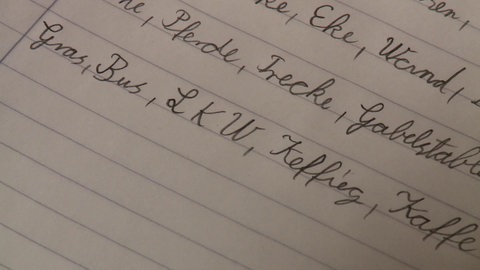 Eke, Wand,
Pferde, Trecke, Gabelstable
Gras, Bus, LKW, Keffieg, Kaffe